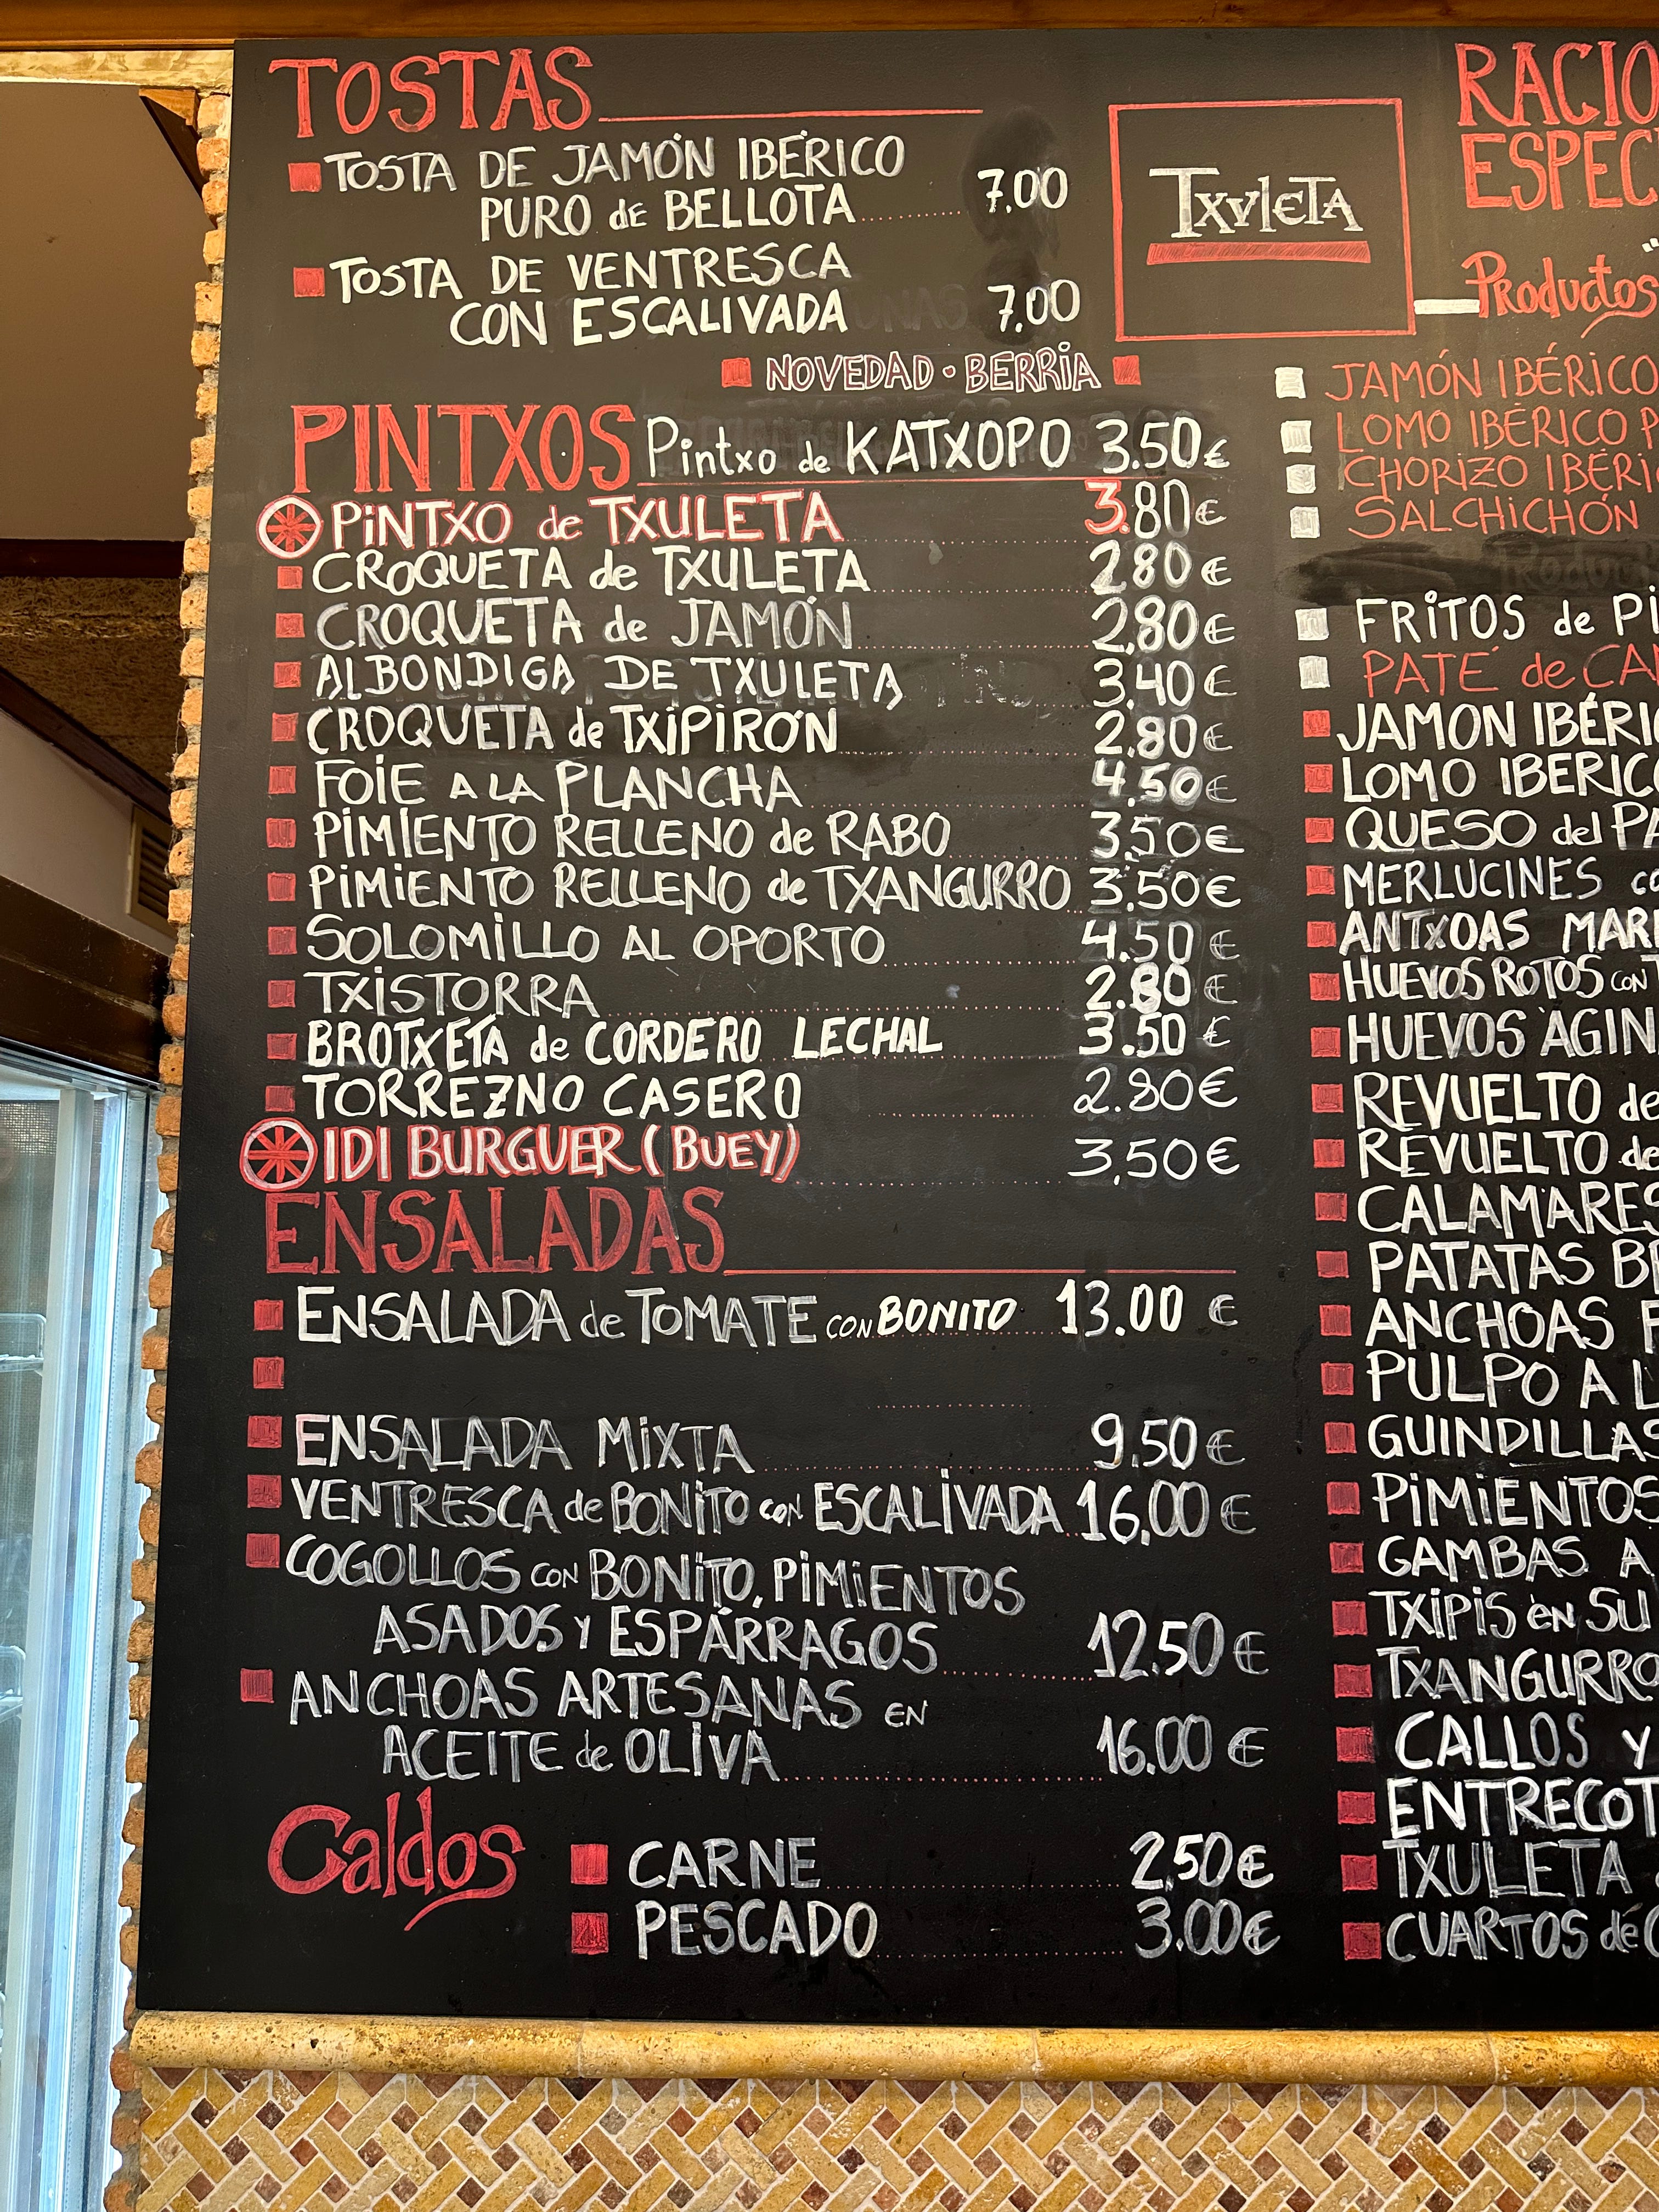 TOSTAS
TOSTA DE JAMÓN IBÉRICO
PURO de BELLOTA 7.00
TOSTA DE VENTRESCA
CON ESCALIVADA 7.00
NOVEDAD • BERRIA
PINTXOS Pintxo de KATXOPO 3.50€
PINTXO de TXULETA 3.80€
CROQUETA de TXULETA 2.80€
CROQUETA de JAMÓN 2,80€
ALBONDIGA DE TXULETA 3.40€
CROQUETA de TXIPIRÓN 2.80€
FOIE A LA PLANCHA 4.50€
PIMIENTO RELLENO de RABO 3,50€
PIMIENTO RELLENO de TXANGURRO 3.50€
SOLOMILLO AL OPORTO 4.50€
TXISTORRA 2.80€
BROTXETA de CORDERO LECHAL 3.50€
TORREZNO CASERO 2.80€
IDI BURGUER (BUEY) 3,50€
ENSALADAS
ENSALADA de TOMATE CON BONITO 13.00€
ENSALADA MIXTA 9.50€
VENTRESCA de BONITO con ESCALIVADA 16,00€
COGOLLOS CON BONITO, PIMIENTOS
ASADOS Y ESPÁRRAGOS 12.50€
ANCHOAS ARTESANAS EN
ACEITE de OLIVA 16.00€
Caldos
CARNE 2,50€
PESCADO 3.00€
TXULETA
RACIO
ESPEC
Productos
JAMÓN IBÉRICO
LOMO IBÉRICO P
CHORIZO IBÉRI
SALCHICHÓN
FRITOS de PI
PATÉ de CA
JAMON IBÉRIC
LOMO IBERICO
QUESO del PA
MERLUCINES co
ANTXOAS MARI
HUEVOS ROTOS CON T
HUEVOS AGIN
REVUELTO de
REVUELTO de
CALAMARES
PATATAS BR
ANCHOAS F
PULPO A L
GUINDILLAS
PIMIENTOS
GAMBAS A
TXIPIS EN SU
TXANGURRO
CALLOS Y
ENTRECOT
TXULETA
CUARTOS de C